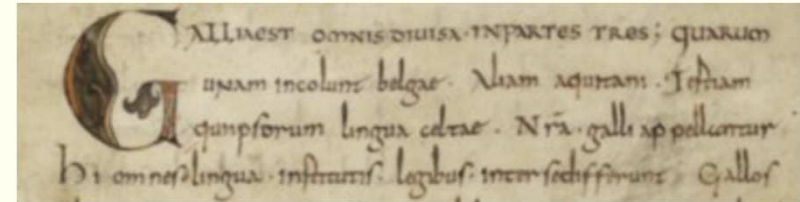 GALLIAEST OMNIS DIUISA·INPARTES TRES; QUARUM
UNAM incolunt belgae· Aliam aquitani· Tertiam
quiipsorum lingua celtae· Nrā· galli appellantur
hi omnes lingua· institutis· legibus· inter sedifferunt Gallos